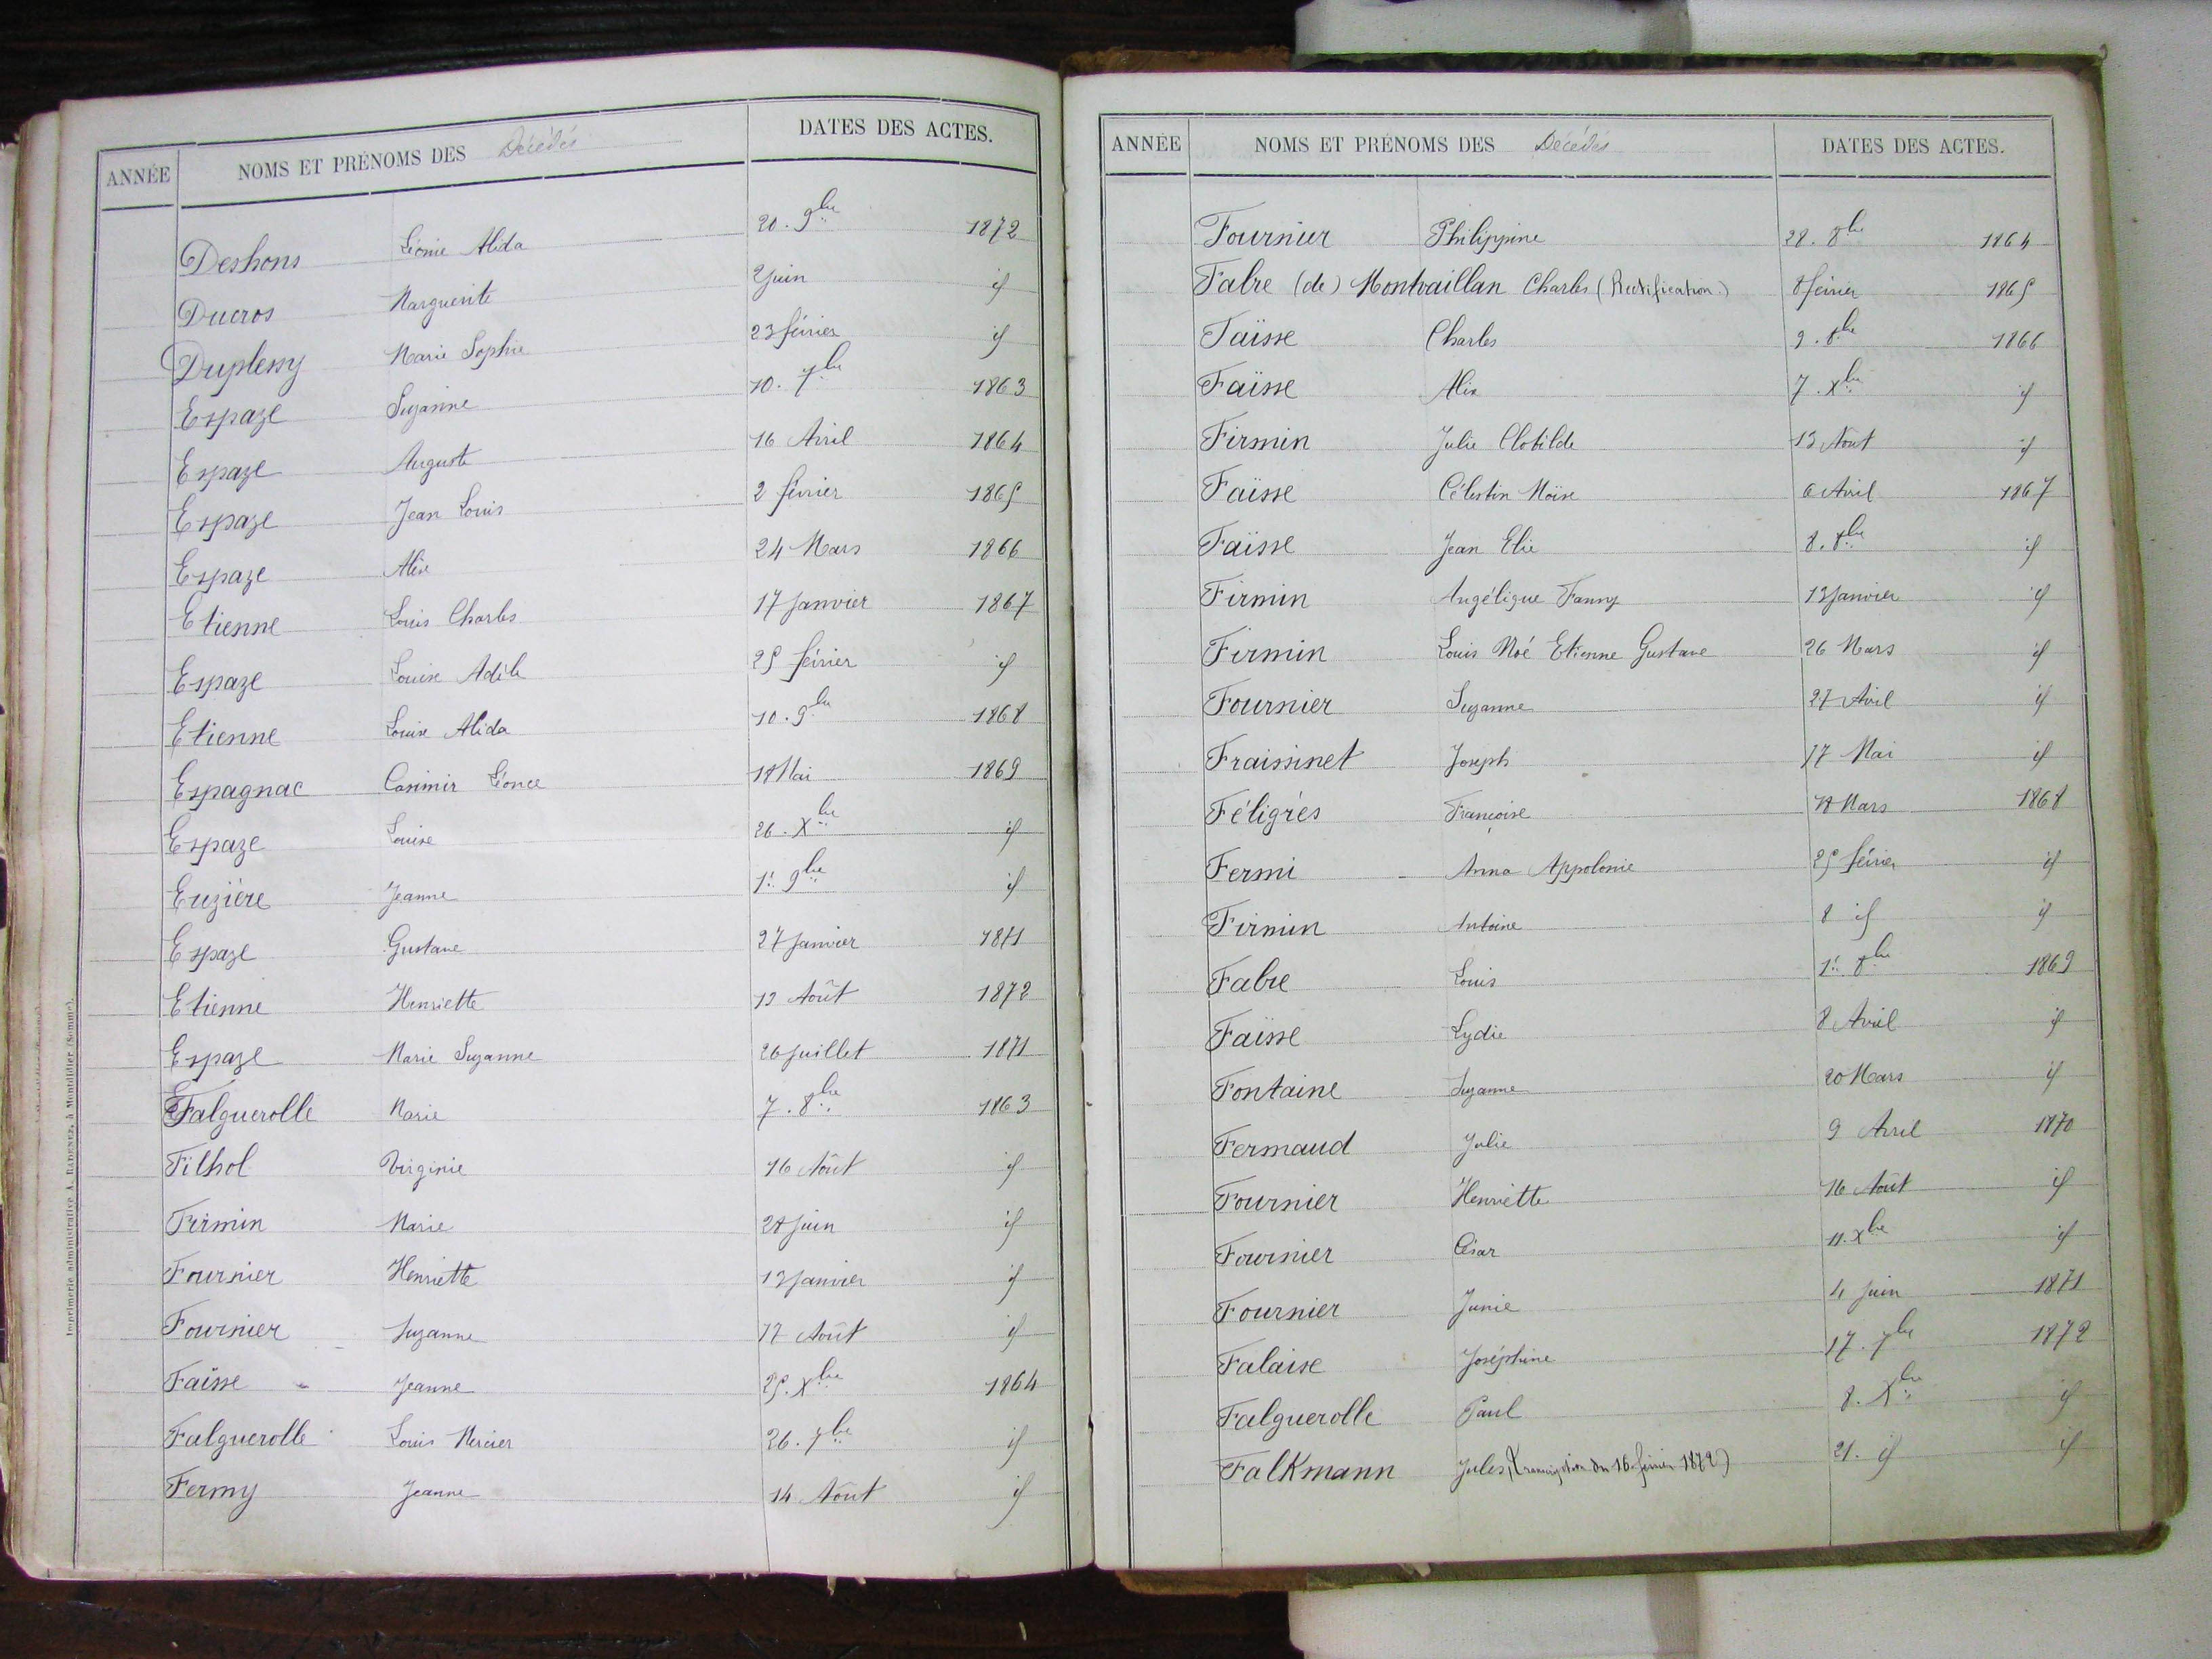 ANNÉE NOMS ET PRÉNOMS DES Décédés DATES DES ACTES.
Deshons Léonie Alida 20. 9bre 1872
Ducros Marguerite Juin id
Duplessy Marie Sophie 23 février id
Espaze Suzanne 10. 7bre 1863
Espaze Auguste 16 Avril 1864
Espaze Jean Louis 2 février 1865
Espaze Alix 24 Mars 1866
Etienne Louis Charles 17 Janvier 1867
Espaze Louise Adèle 25 février id
Etienne Louise Alida 10. 9bre 1868
Espagnac Casimir Léonce Mai 1869
Espaze Louise 26. Xbre id
Euzière Jeanne 1er 9bre id
Espaze Gustave 27 Janvier 1871
Etienne Henriette 13 Août 1872
Espaze Marie Suzanne 26 Juillet 1871
Falguerolle Marie 7. 8bre 1863
Filhol Virginie 16 Août id
Firmin Marie 28 Juin id
Fournier Henriette 13 Janvier id
Fournier Suzanne 12 Août id
Faïsse Jeanne 25. Xbre 1864
Falguerolle Louis Mercier 26. 7bre id
Fermy Jeanne 14 Août id
Imprimerie administrative A. Radenez, à Montdidier (Somme).
ANNÉE NOMS ET PRÉNOMS DES Décédés DATES DES ACTES.
Fournier Philippine 28. 8bre 1864
Fabre (de) Montvaillan Charles (Rectification.) 8 février 1865
Faïsse Charles 9. 8bre 1866
Faïsse Alix 7. Xbre id
Firmin Julie Clotilde 13 Août id
Faïsse Célestin Moïse 6 Avril 1867
Faïsse Jean Elie 8. 8bre id
Firmin Angélique Fanny 13 Janvier id
Firmin Louis Noé Etienne Gustave 26 Mars id
Fournier Suzanne 27 Avril id
Fraissinet Joseph 17 Mai id
Féligrès Françoise Mars 1868
Fermi Anna Appolonie 25 février id
Firmin Antoine 8 id id
Fabre Louis 1er 8bre 1869
Faïsse Lydie 8 Avril id
Fontaine Suzanne 20 Mars id
Fermaud Julie 9 Avril 1870
Fournier Henriette 16 Août id
Fournier César 11. Xbre id
Fournier Junie 4 Juin 1871
Falaise Joséphine 17. 7bre 1872
Falguerolle Paul 8. Xbre id
Falkmann Jules, (transcription du 16 février 1872) 21. id id